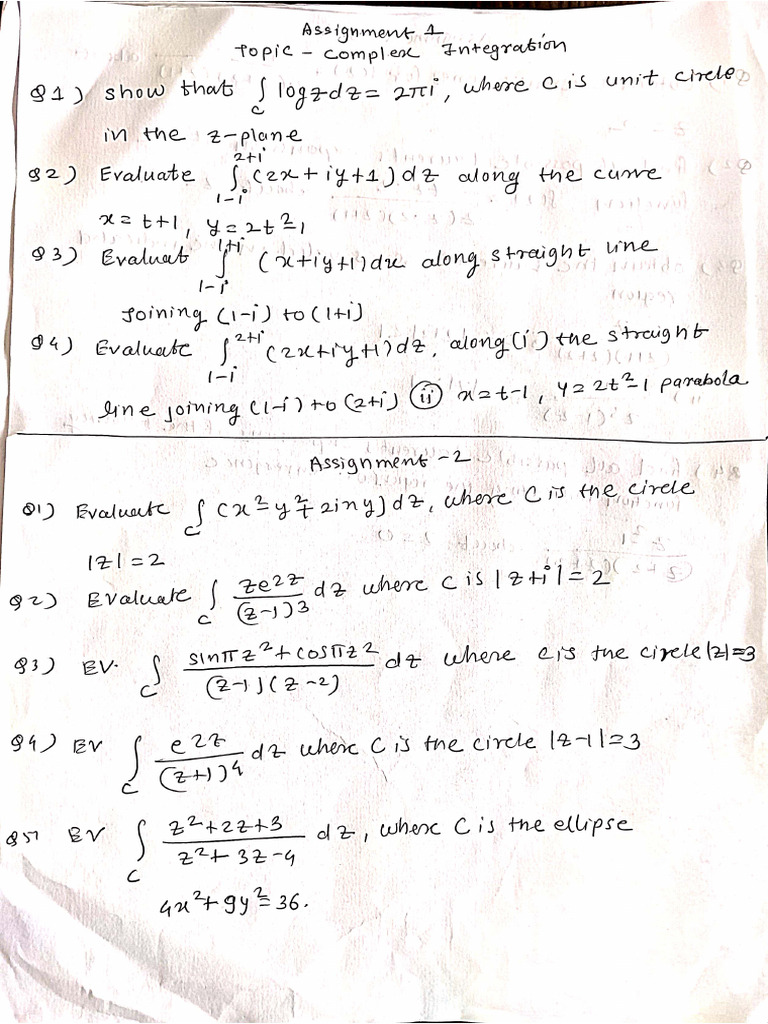 Assignment 1
Topic - Complex Integration
Q1) show that ∫_C log z dz = 2πi, where C is unit circle
in the z-plane
Q2) Evaluate ∫_{1-i}^{2+i} (2x + iy + 1) dz along the curve
x = t+1, y = 2t²-1
Q3) Evaluat ∫_{1-i}^{1+i} (x+iy+1) dx along straight line
Joining (1-i) to (1+i)
Q4) Evaluate ∫_{1-i}^{2+i} (2x+iy+1) dz, along (i) the straight
line joining (1-i) to (2+i) (ii) x = t-1, y = 2t²-1 parabola
Assignment - 2
Q1) Evaluate ∫_C (x² - y² + 2ixy) dz, where C is the circle
|z| = 2
Q2) Evaluate ∫_C ze^{2z}/(z-1)³ dz where C is |z+i| = 2
Q3) EV. ∫_C (sin πz² + cos πz²)/((z-1)(z-2)) dz where C is the circle |z| = 3
Q4) EV ∫_C e^{2z}/(z+1)⁴ dz where C is the circle |z-1| = 3
Q5) EV ∫_C (z²+2z+3)/(z²+3z-4) dz, where C is the ellipse
4x² + 9y² = 36.